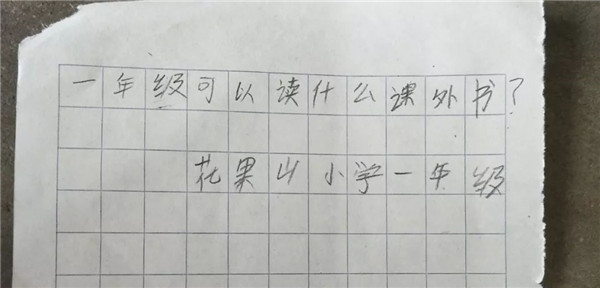 一年级可以读什么课外书？
花果山小学一年级